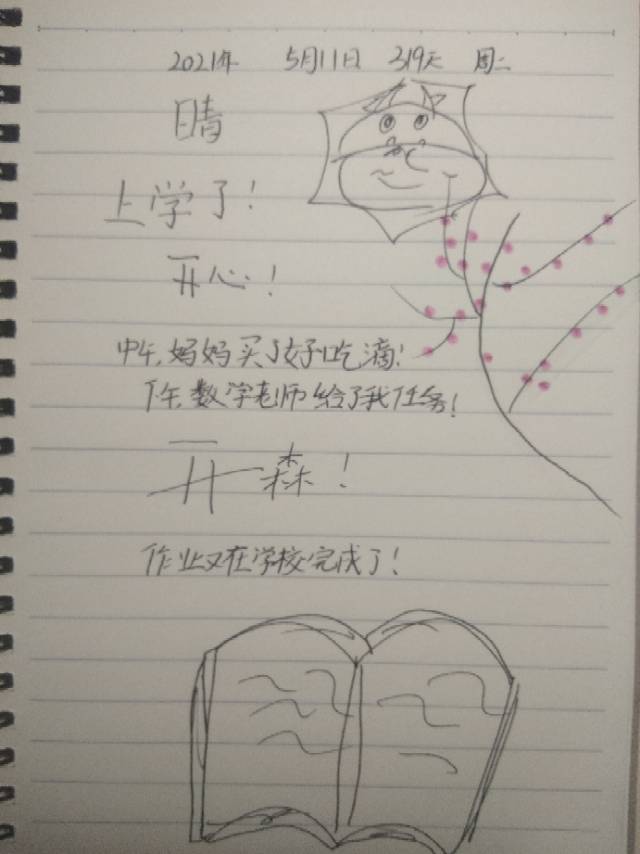 2021年 5月11日 319天 周二
晴
上学了!
开心!
中午,妈妈买了好吃滴!
下午,数学老师给了我任务!
开森!
作业又在学校完成了!